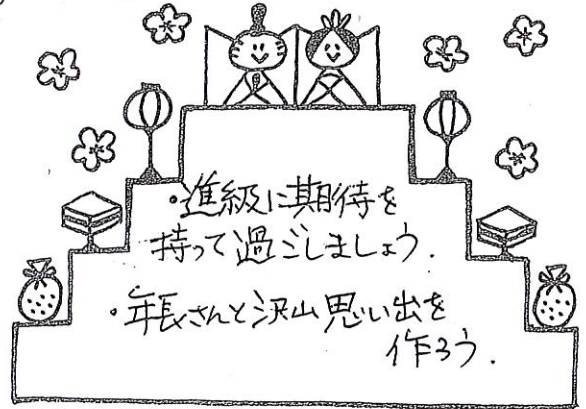 ・進級に期待を
持って過ごしましょう.
・年長さんと沢山思い出を
作ろう.